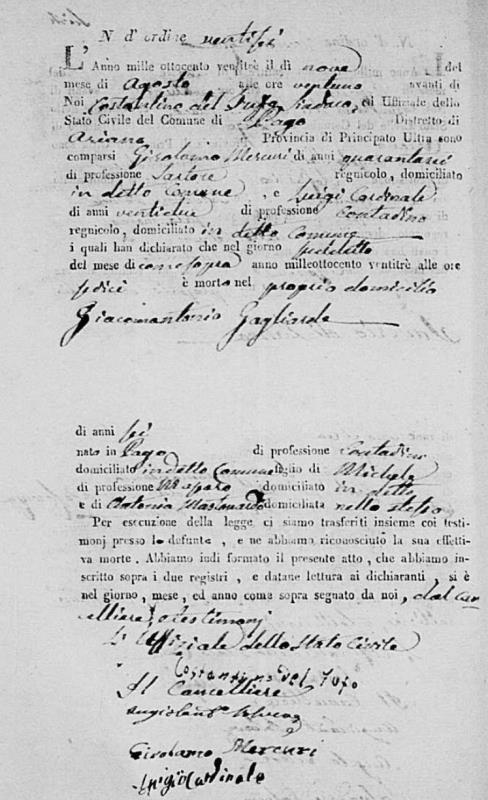 N. d' ordine ventisei
L' Anno mille ottocento ventitrè il dì nove del
mese di Agosto alle ore ventuno avanti di
Noi Costantino del Tufo Sindaco, ed Uffiziale dello
Stato Civile del Comune di Pago Distretto di
Ariano Provincia di Principato Ultra sono
comparsi Girolamo Mercuri di anni quarantasei
di professione Sartore regnicolo, domiciliato
in detto Comune, e Luigi Cardinale
di anni ventidue di professione Contadino
regnicolo, domiciliato in detto Comune
i quali han dichiarato che nel giorno sudetto
del mese di come sopra anno milleottocento ventitrè alle ore
sedici è morto nel proprio domicilio
Giacomantonio Gagliarde
di anni sei
nato in Pago di professione Contadino
domiciliato in detto Comune figlio di Michele
di professione domiciliato in detto
e di Antonia domiciliata nello stesso
Per esecuzione della legge ci siamo trasferiti insieme coi testi-
monj presso lo defunto, e ne abbiamo riconosciuto la sua effetti-
va morte. Abbiamo indi formato il presente atto, che abbiamo
inscritto sopra i due registri, e datane lettura ai dichiaranti, si è
nel giorno, mese, ed anno come sopra segnato da noi, dal can-
celliere, e testimonj
L' Uffiziale dello Stato Civile
Costantino del Tufo
Il Cancelliere
Girolamo Mercuri
Luigi Cardinale